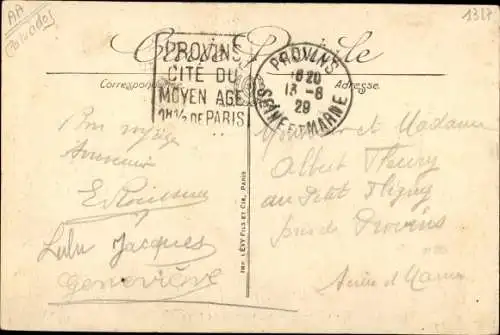 AA
Calvados
1317
Carte Postale
PROVINS
CITÉ DU
MOYEN AGE
1H½ DE PARIS
PROVINS
1620
13-8
29
SEINE ET MARNE
Correspondance
Adresse
Bon voyage
E. Rousseau
Lulu Jacques
Geneviève
IMP. LÉVY FILS ET CIE, PARIS
Monsieur et Madame
Albert Fleury
au Petit Fligny
près de Provins
Seine et Marne